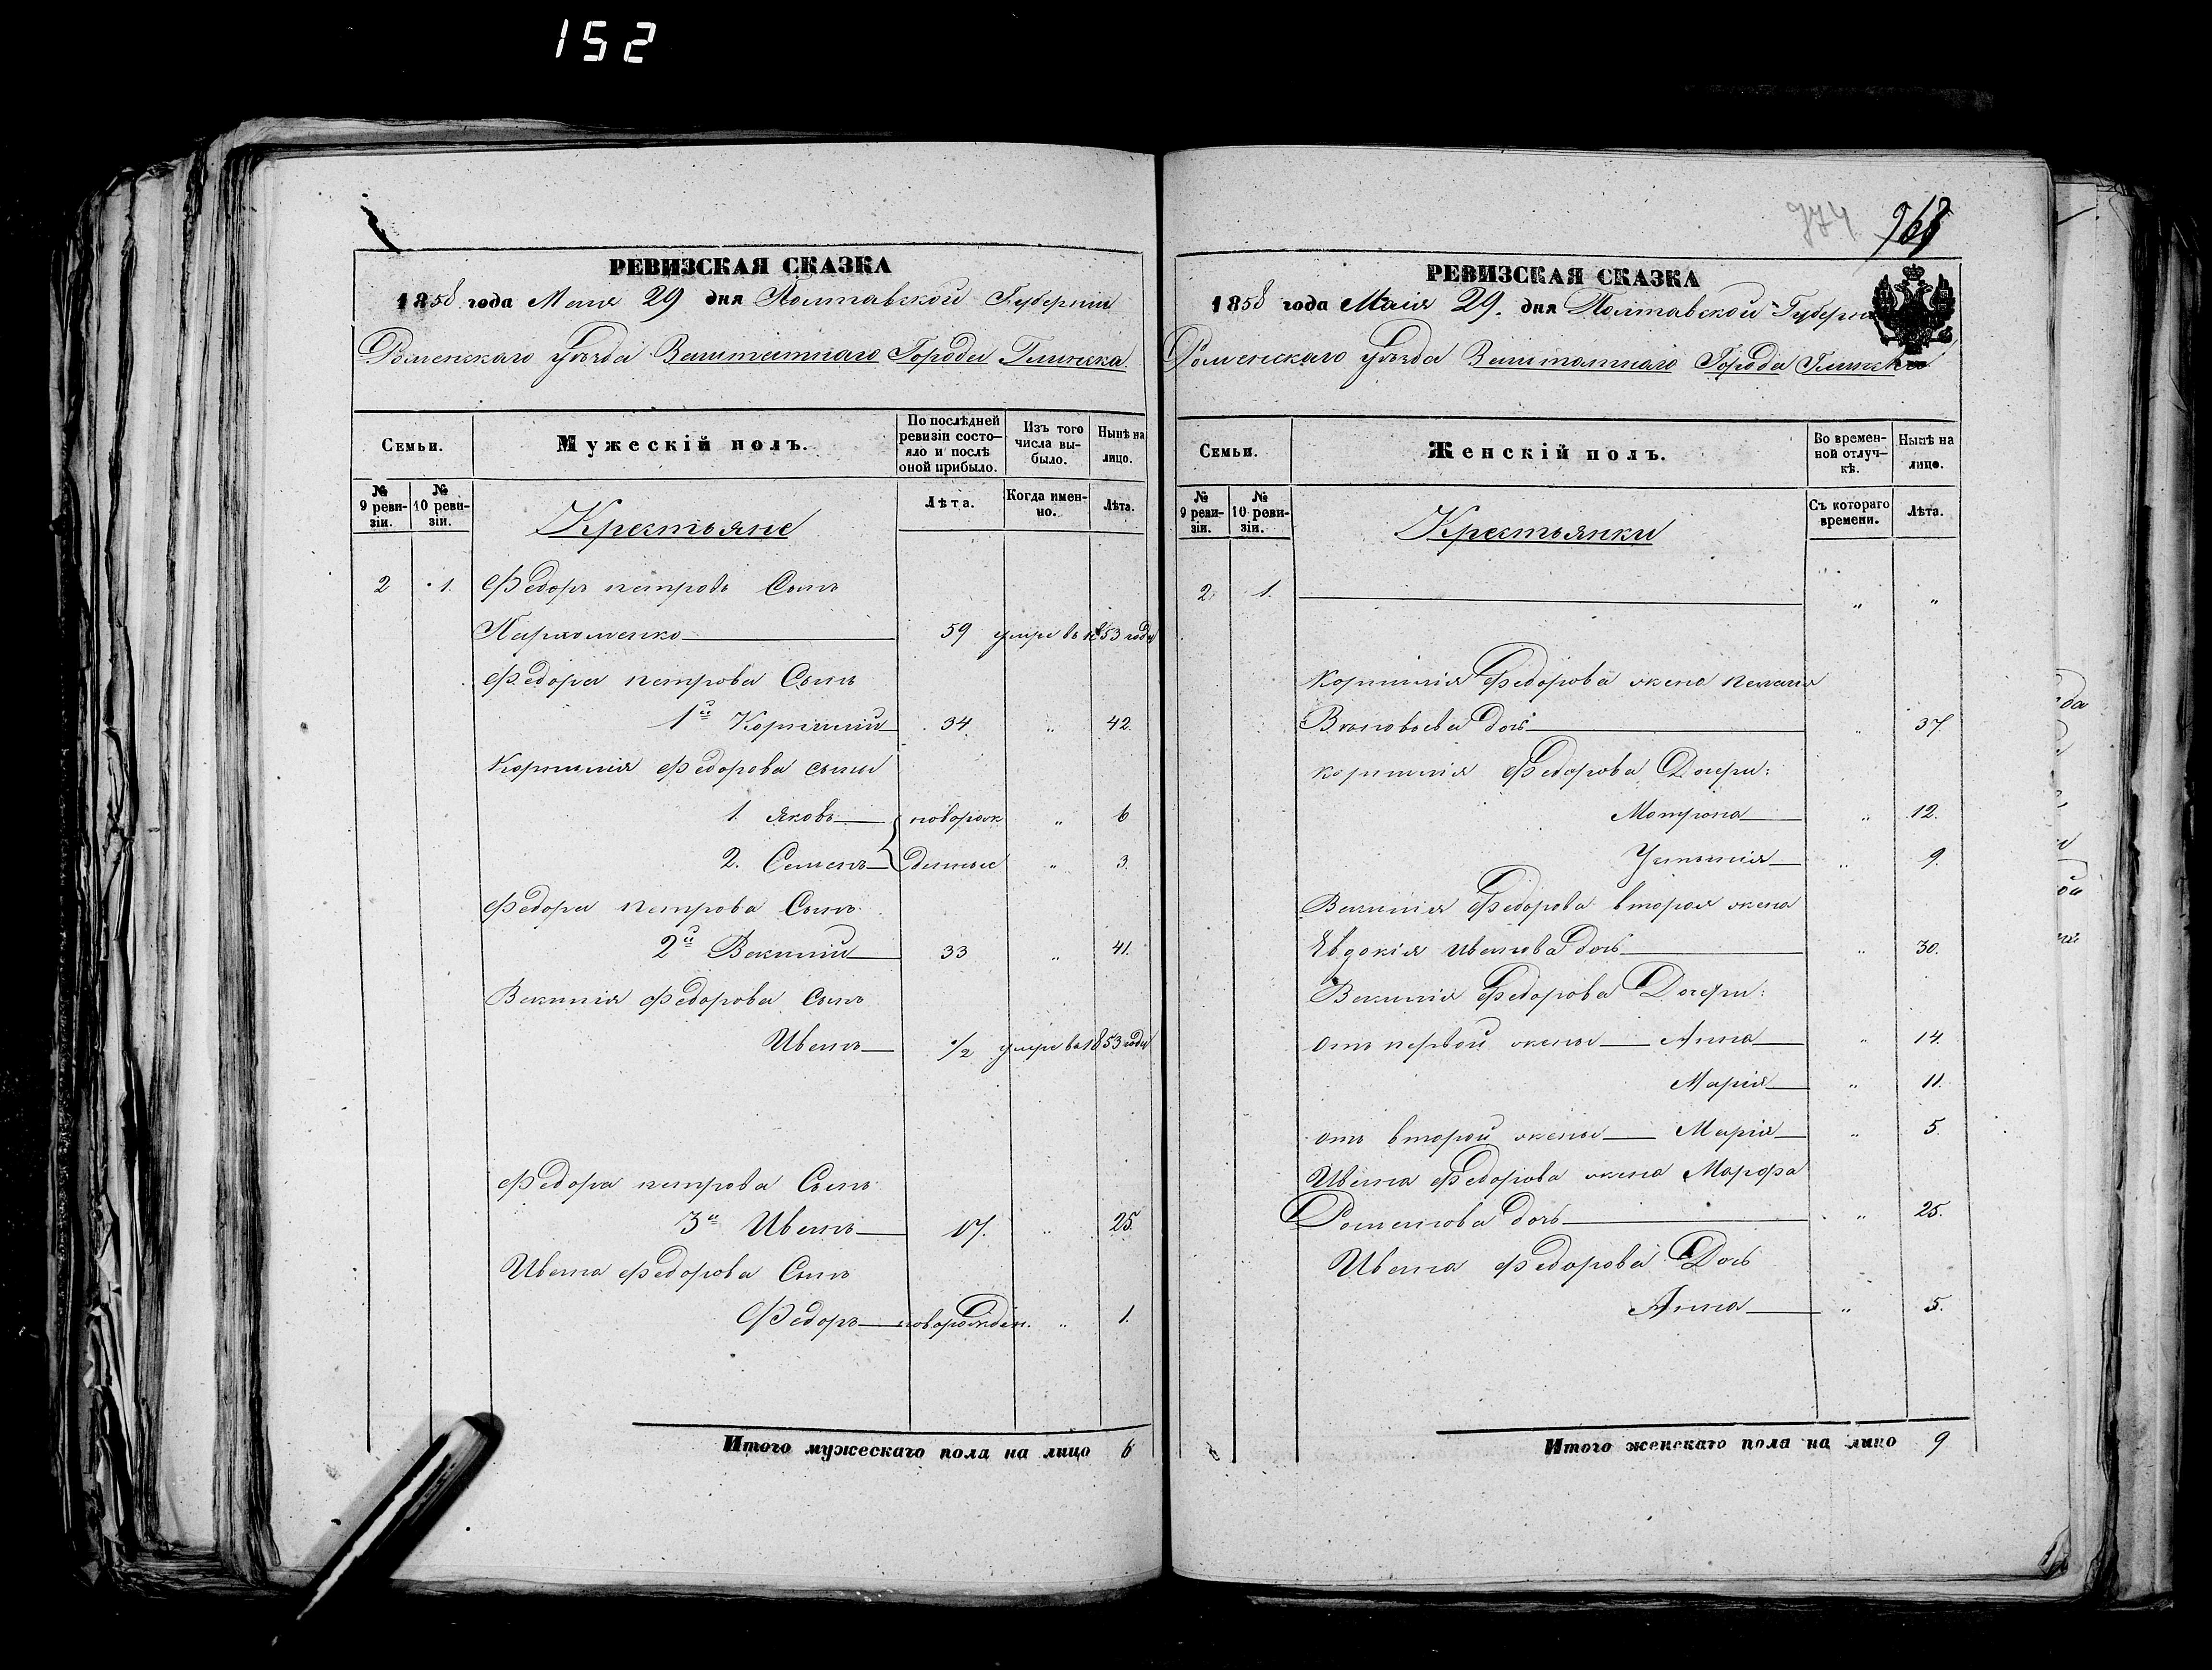 152
РЕВИЗСКАЯ СКАЗКА
1858 года Мая 29 дня Полтавской Губернии
Роменскаго Уѣзда Заштатнаго Города Глинска.
Семьи.
Мужескій полъ.
По послѣдней ревизіи состояло и послѣ оной прибыло.
Изъ того числа выбыло.
Нынѣ на лицо.
№ 9 ревизіи.
№ 10 ревизіи.
Крестьяне
Лѣта.
Когда именно.
Лѣта.
2 1. Федоръ петровъ Сынъ
Пархоменко 59 умре въ 1853 года
Федора петрова Сынъ
1й Корнилий 34 " 42.
Корнилія Федорова сыны
1. Яковъ новорож " 6
2. Семенъ денные " 3.
Федора петрова Сынъ
2й Василий 33 " 41.
Василія Федорова Сынъ
Иванъ 1/2 умре въ 1853 года
Федора петрова Сынъ
3й Иванъ 17. " 25
Ивана Федорова Сынъ
Федоръ новорожден. " 1.
Итого мужескаго пола на лицо 6
974 968
РЕВИЗСКАЯ СКАЗКА
1858 года Маія 29. дня Полтавской Губерніи
Роменскаго Уѣзда Заштатнаго Города Глинска
Семьи.
Женскій полъ.
Во временной отлучкѣ.
Нынѣ на лицо.
№ 9 ревизіи.
№ 10 ревизіи.
Крестьянки
Съ котораго времени.
Лѣта.
2. 1. " "
Корнилія Федорова жена
дочь " 37.
корнилія Федорова Дочери:
Мотрона " 12.
Устинія " 9.
Василія Федорова вторая жена
Евдокія иванова дочь " 30.
Василія Федорова Дочери:
отъ первой жены Анна " 14.
Марія " 11.
отъ второй жены Марія " 5.
Ивана Федорова жена Марфа
Романова дочь " 25.
Ивана Федорова Дочь
Анна " 5.
Итого женскаго пола на лицо 9